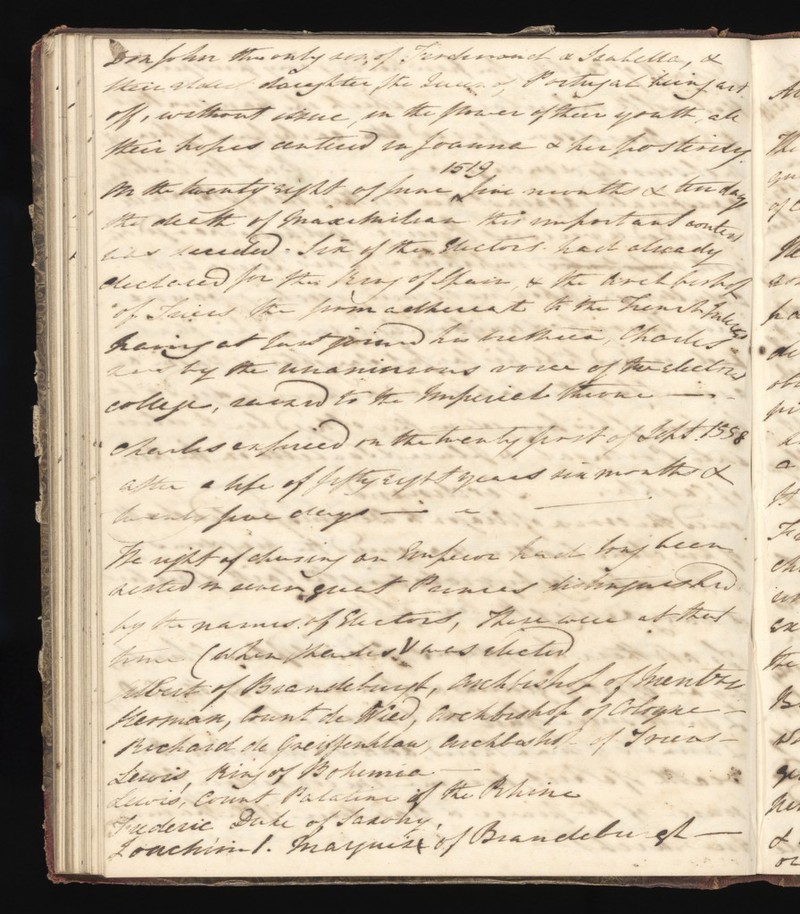 Don John the only son of Ferdinand & Isabella, &
their eldest daughter the Queen of Portugal being cut
off, without issue, in the flower of their youth, all
their hopes centered in Joanna & her posterity
1519
On the twenty eight of June five months & ten days
the death of Maximilian this important contest
was decided. Six of the Electors had already
declared for the King of Spain, & the Archbishop
of Trèves the firm adherent to the French
having at last joined his brethren, Charles
was by the unanimous voice of the electoral
college, raised to the Imperial throne —
Charles expired on the twenty first of Sept. 1558
after a life of fifty eight years six months &
twenty five days —
The right of chusing an Emperor had long been
vested in seven great Princes distinguished
by the names of Electors, These were at that
time (when Charles V was elected
Albert of Brandeburgh, Archbishop of Mentze
Herman, Count de Wied, Archbishop of Cologne —
Richard de Greiffenklau, Archbishop of Trèves —
Lewis, King of Bohemia —
Lewis, Count Palatine of the Rhine
Frederic Duke of Saxony,
Joachim I. Marquis of Brandeburgh —